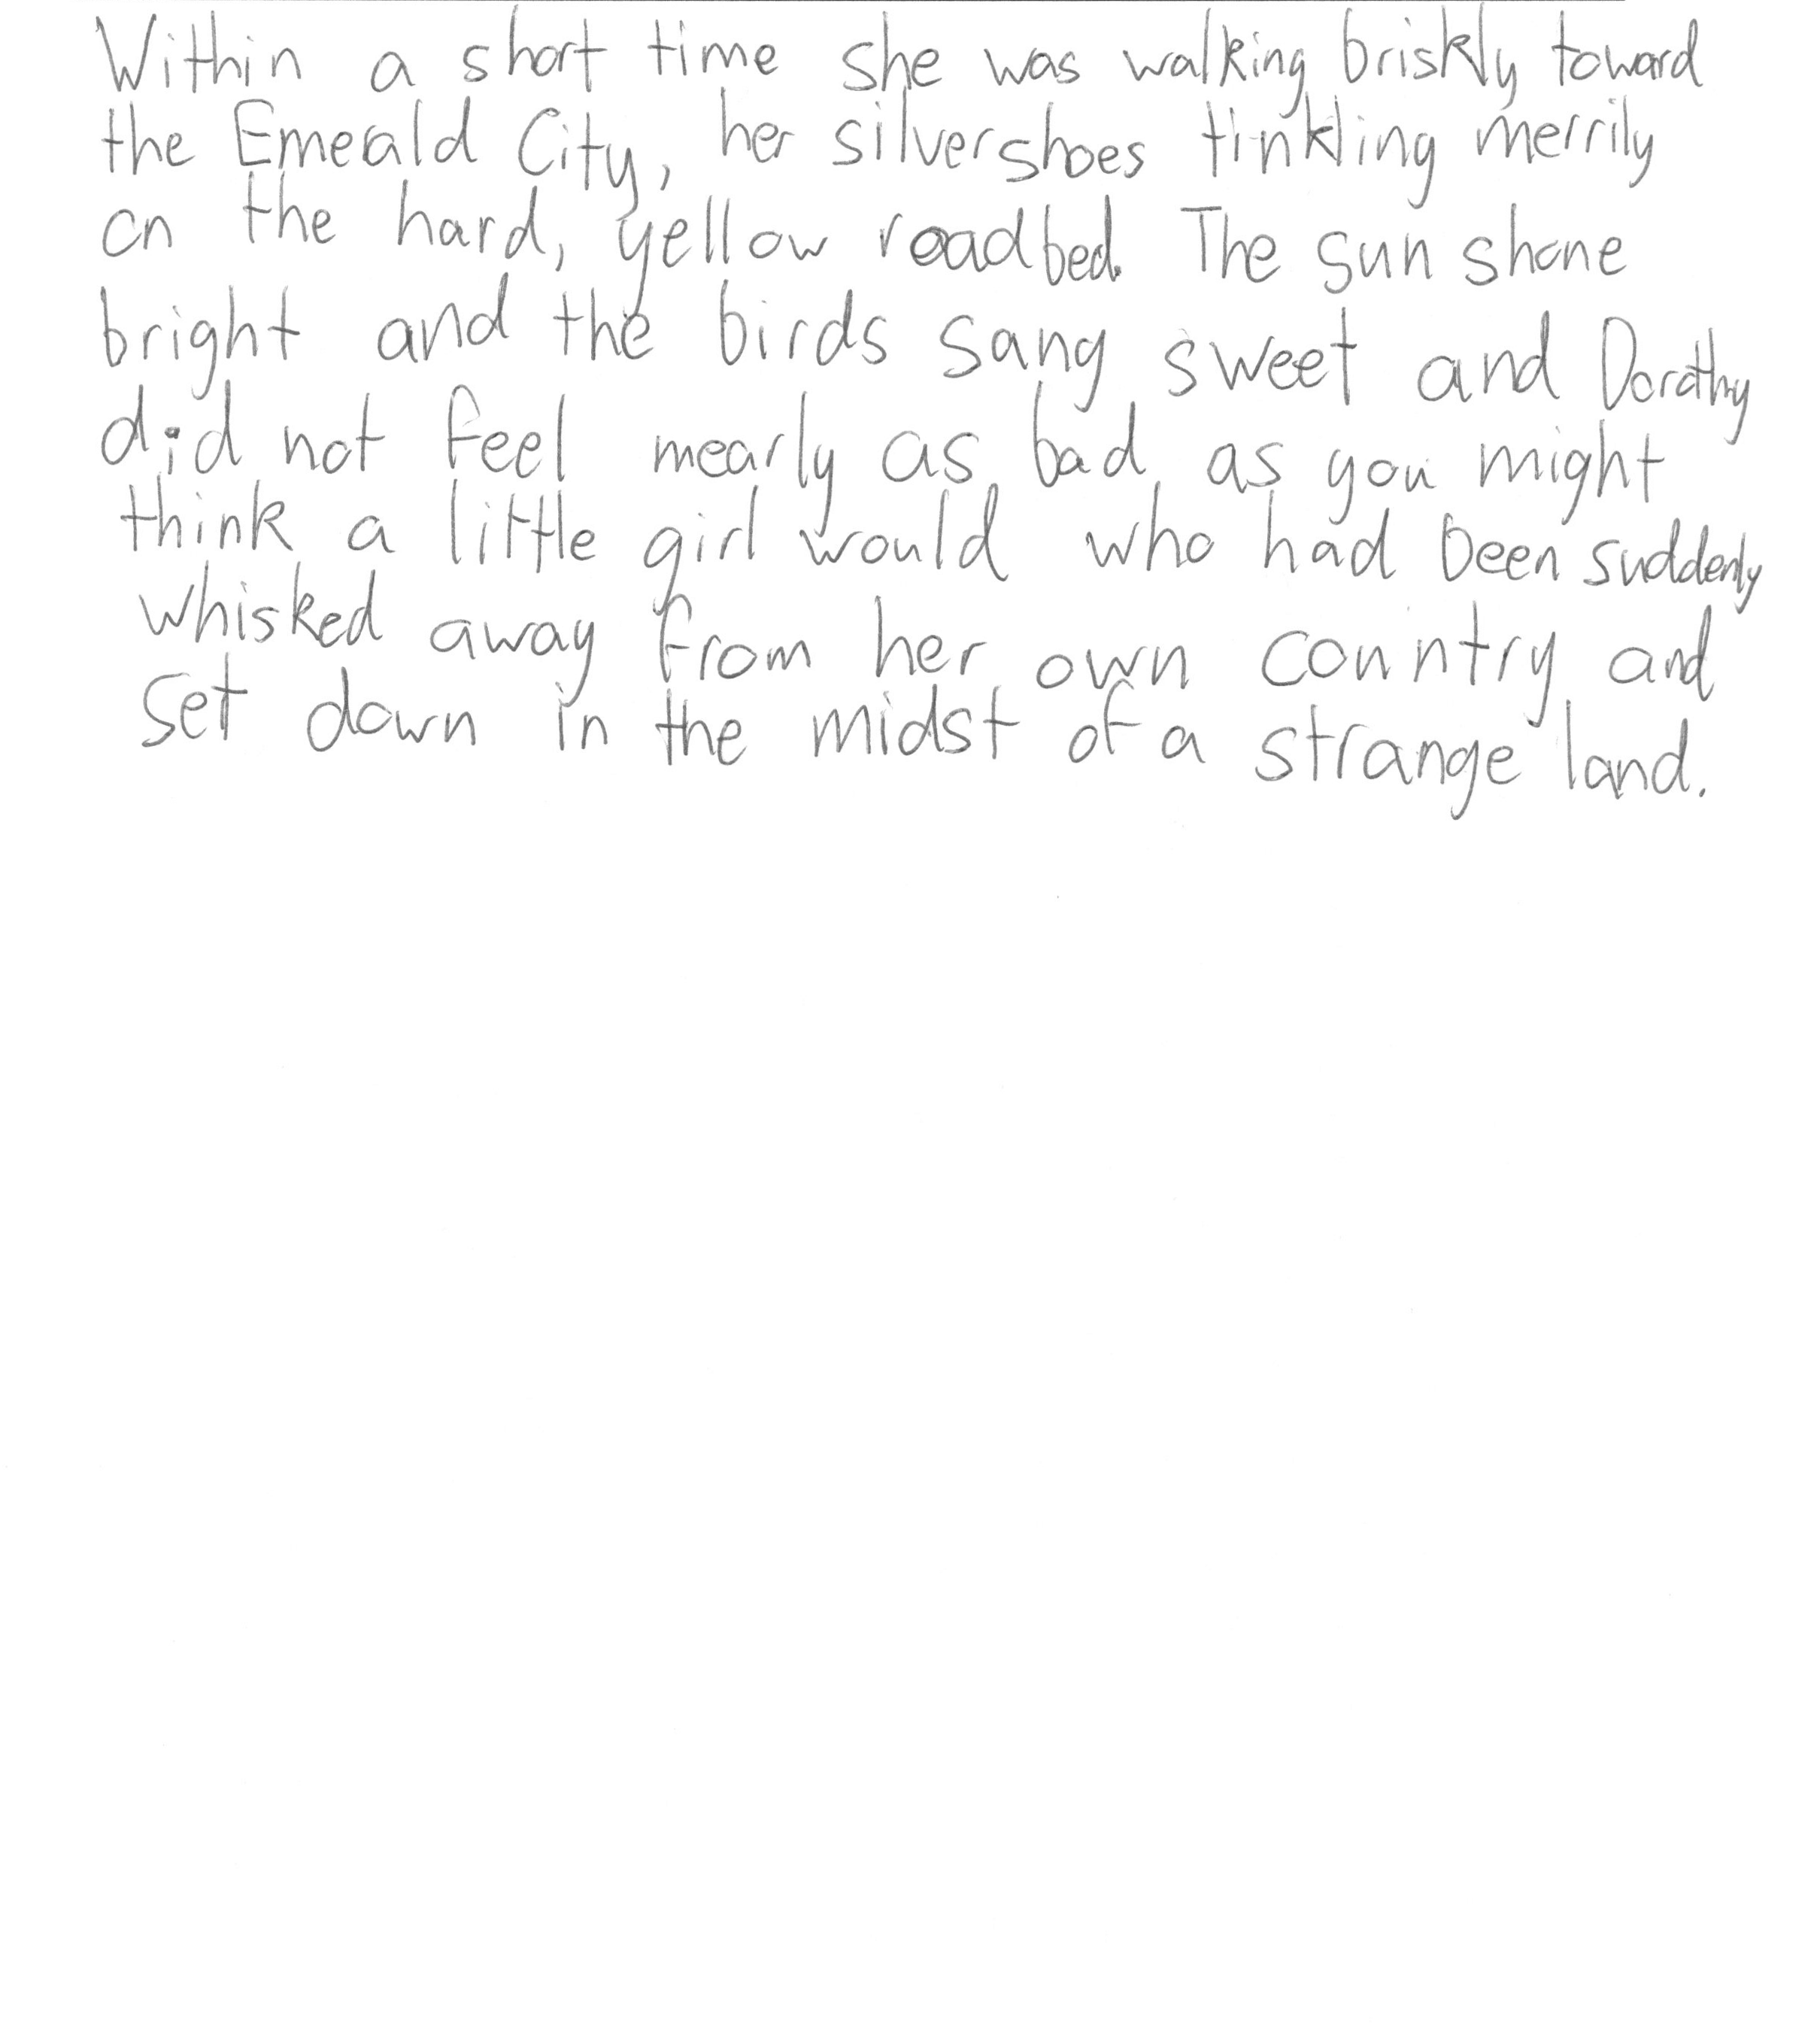 Within a short time she was walking briskly toward
the Emerald City, her silver shoes tinkling merrily
on the hard, yellow roadbed. The sun shone
bright and the birds sang sweet and Dorothy
did not feel mearly as bad as you might
think a little girl would who had been suddenly
whisked away from her own country and
set down in the midst of a strange land.